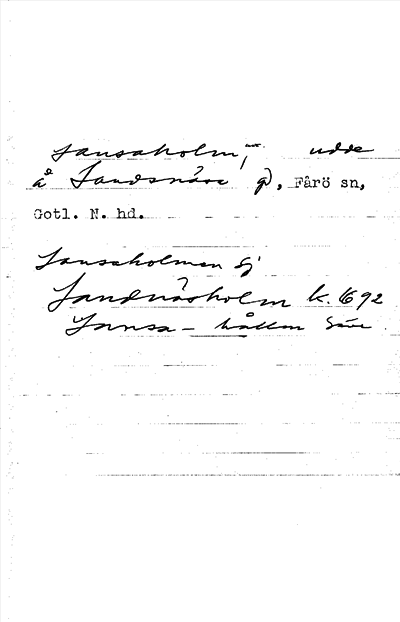 Sansaholm, udde
å Sandsnäse g), Fårö sn,
Gotl. N. hd.
Sansaholmen Ej
Sandnäsholm k. 1692
Sansa- hällem Säve